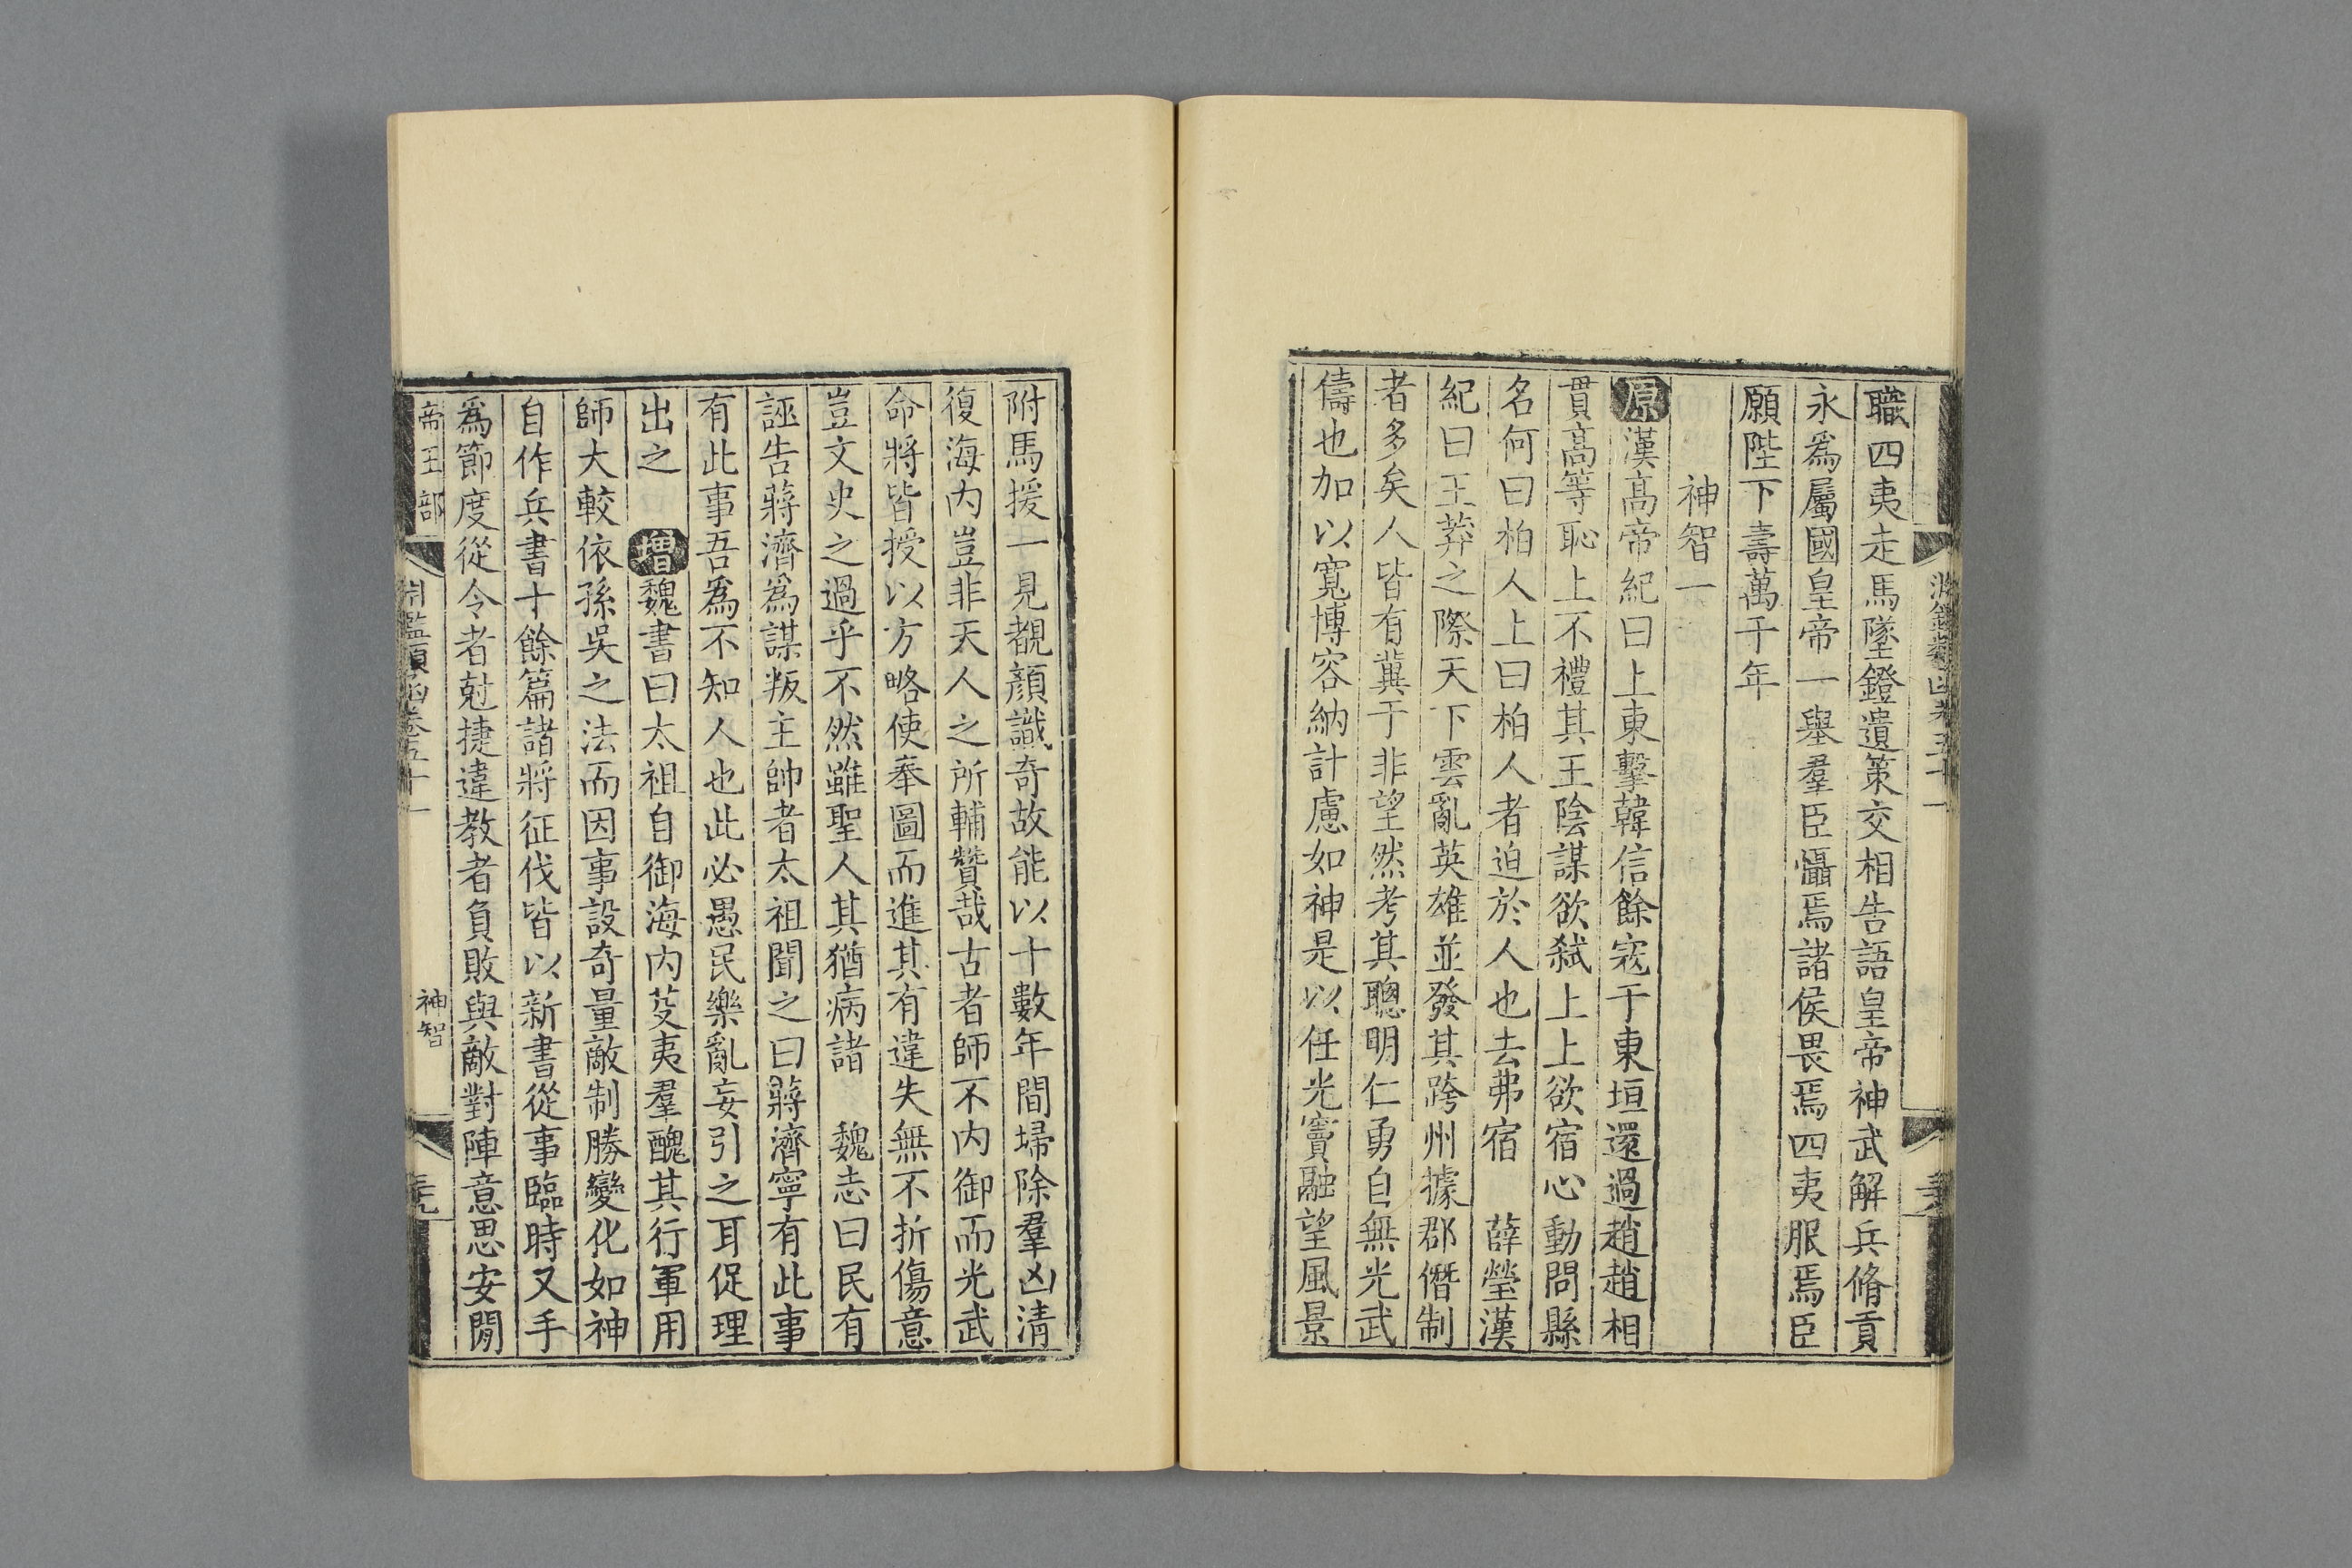 職四夷走馬墜鐙遺策交相告語皇帝神武解兵脩貢
永爲屬國皇帝一舉羣臣懾焉諸侯畏焉四夷服焉臣
願陛下壽萬千年
神智一
原漢高帝紀曰上東擊韓信餘寇于東垣還過趙趙相
貫高等恥上不禮其王陰謀欲弑上上欲宿心動問縣
名何曰柏人上曰柏人者迫於人也去弗宿　薛瑩漢
紀曰王莽之際天下雲亂英雄並發其跨州據郡僭制
者多矣人皆有冀于非望然考其聰明仁勇自無光武
儔也加以寬博容納計慮如神是以任光竇融望風景
附馬援一見覩顏識奇故能以十數年間埽除羣凶清
復海内豈非天人之所輔贊哉古者師不内御而光武
命將皆授以方略使奉圖而進其有違失無不折傷意
豈文史之過乎不然雖聖人其猶病諸　魏志曰民有
誣告蔣濟爲謀叛主帥者太祖聞之曰蔣濟寧有此事
有此事吾爲不知人也此必愚民樂亂妄引之耳促理
出之　增魏書曰太祖自御海内芟夷羣醜其行軍用
師大較依孫吳之法而因事設奇量敵制勝變化如神
自作兵書十餘篇諸將征伐皆以新書從事臨時又手
爲節度從令者尅捷違教者負敗與敵對陣意思安閒
帝王部　淵鑑類函卷五十一　神智